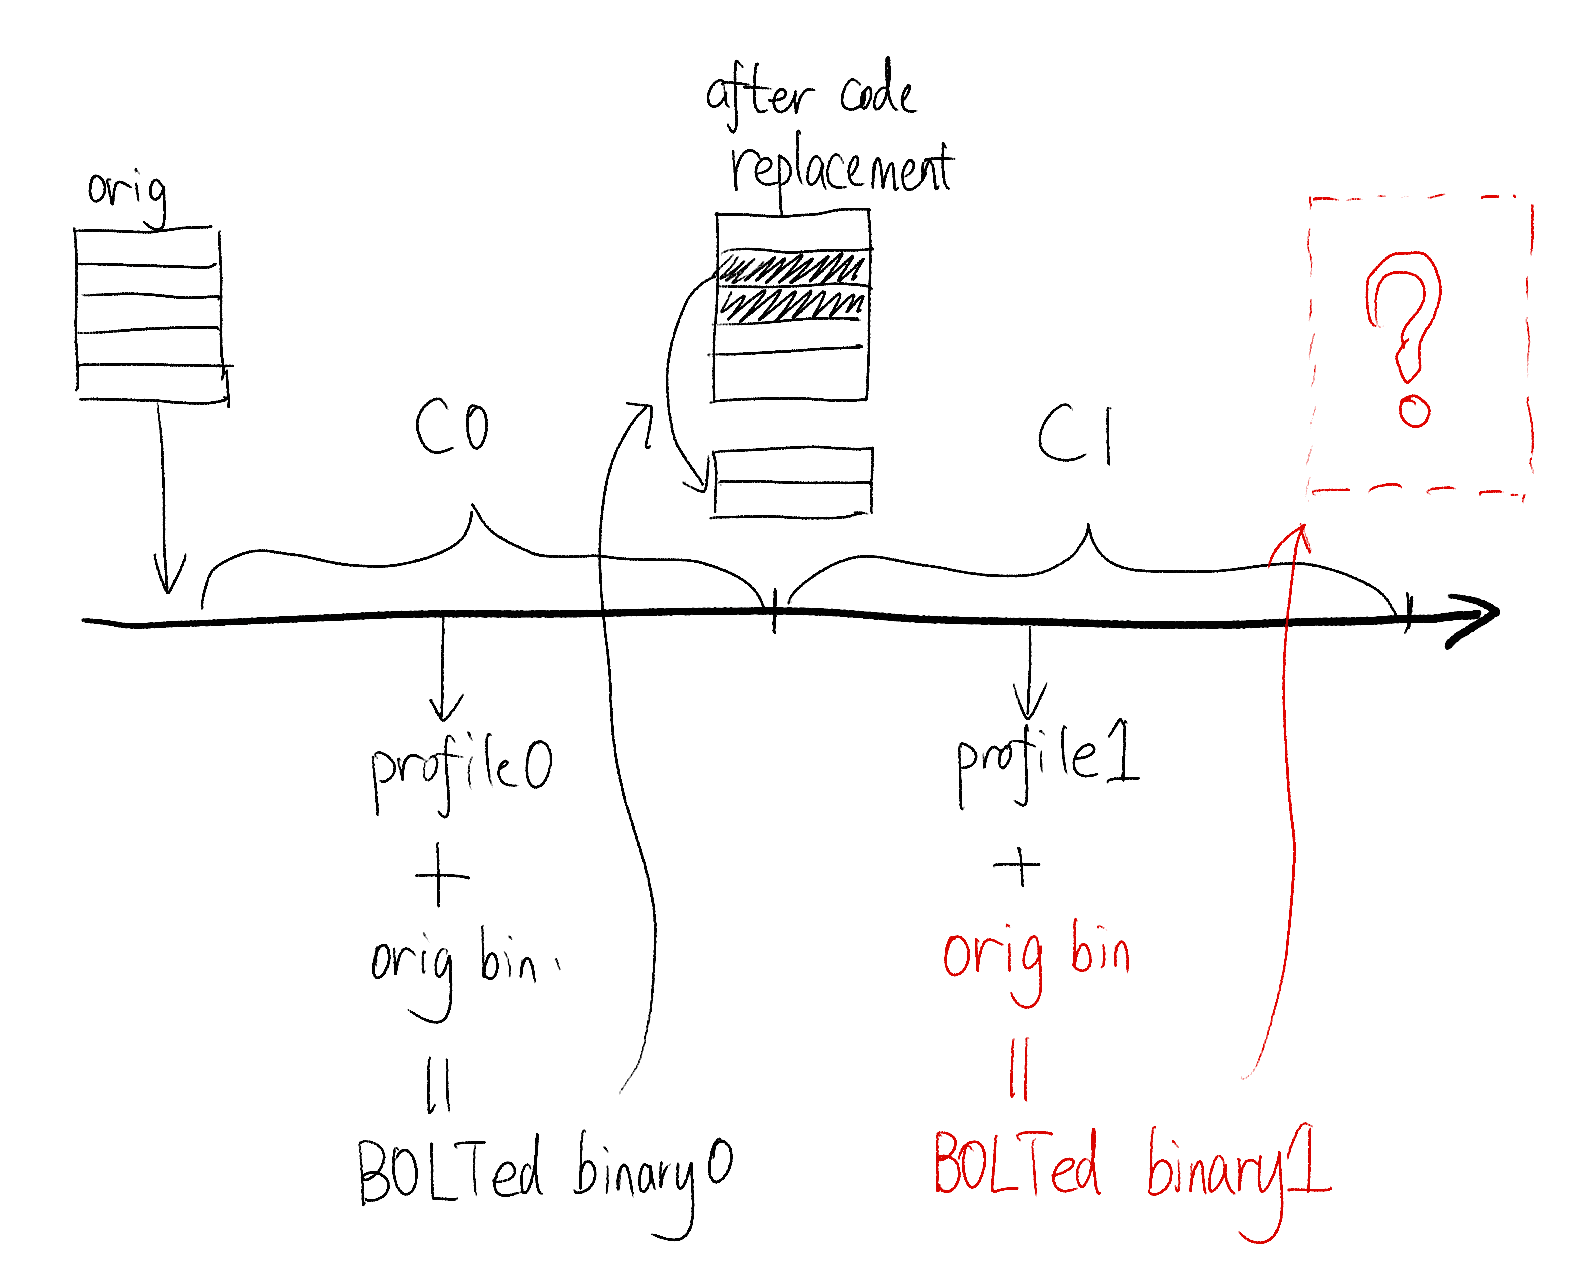 orig
after code
replacement
?
C0
C1
profile0
+
orig bin.
||
BOLTed binary0
profile1
+
orig bin
||
BOLTed binary1